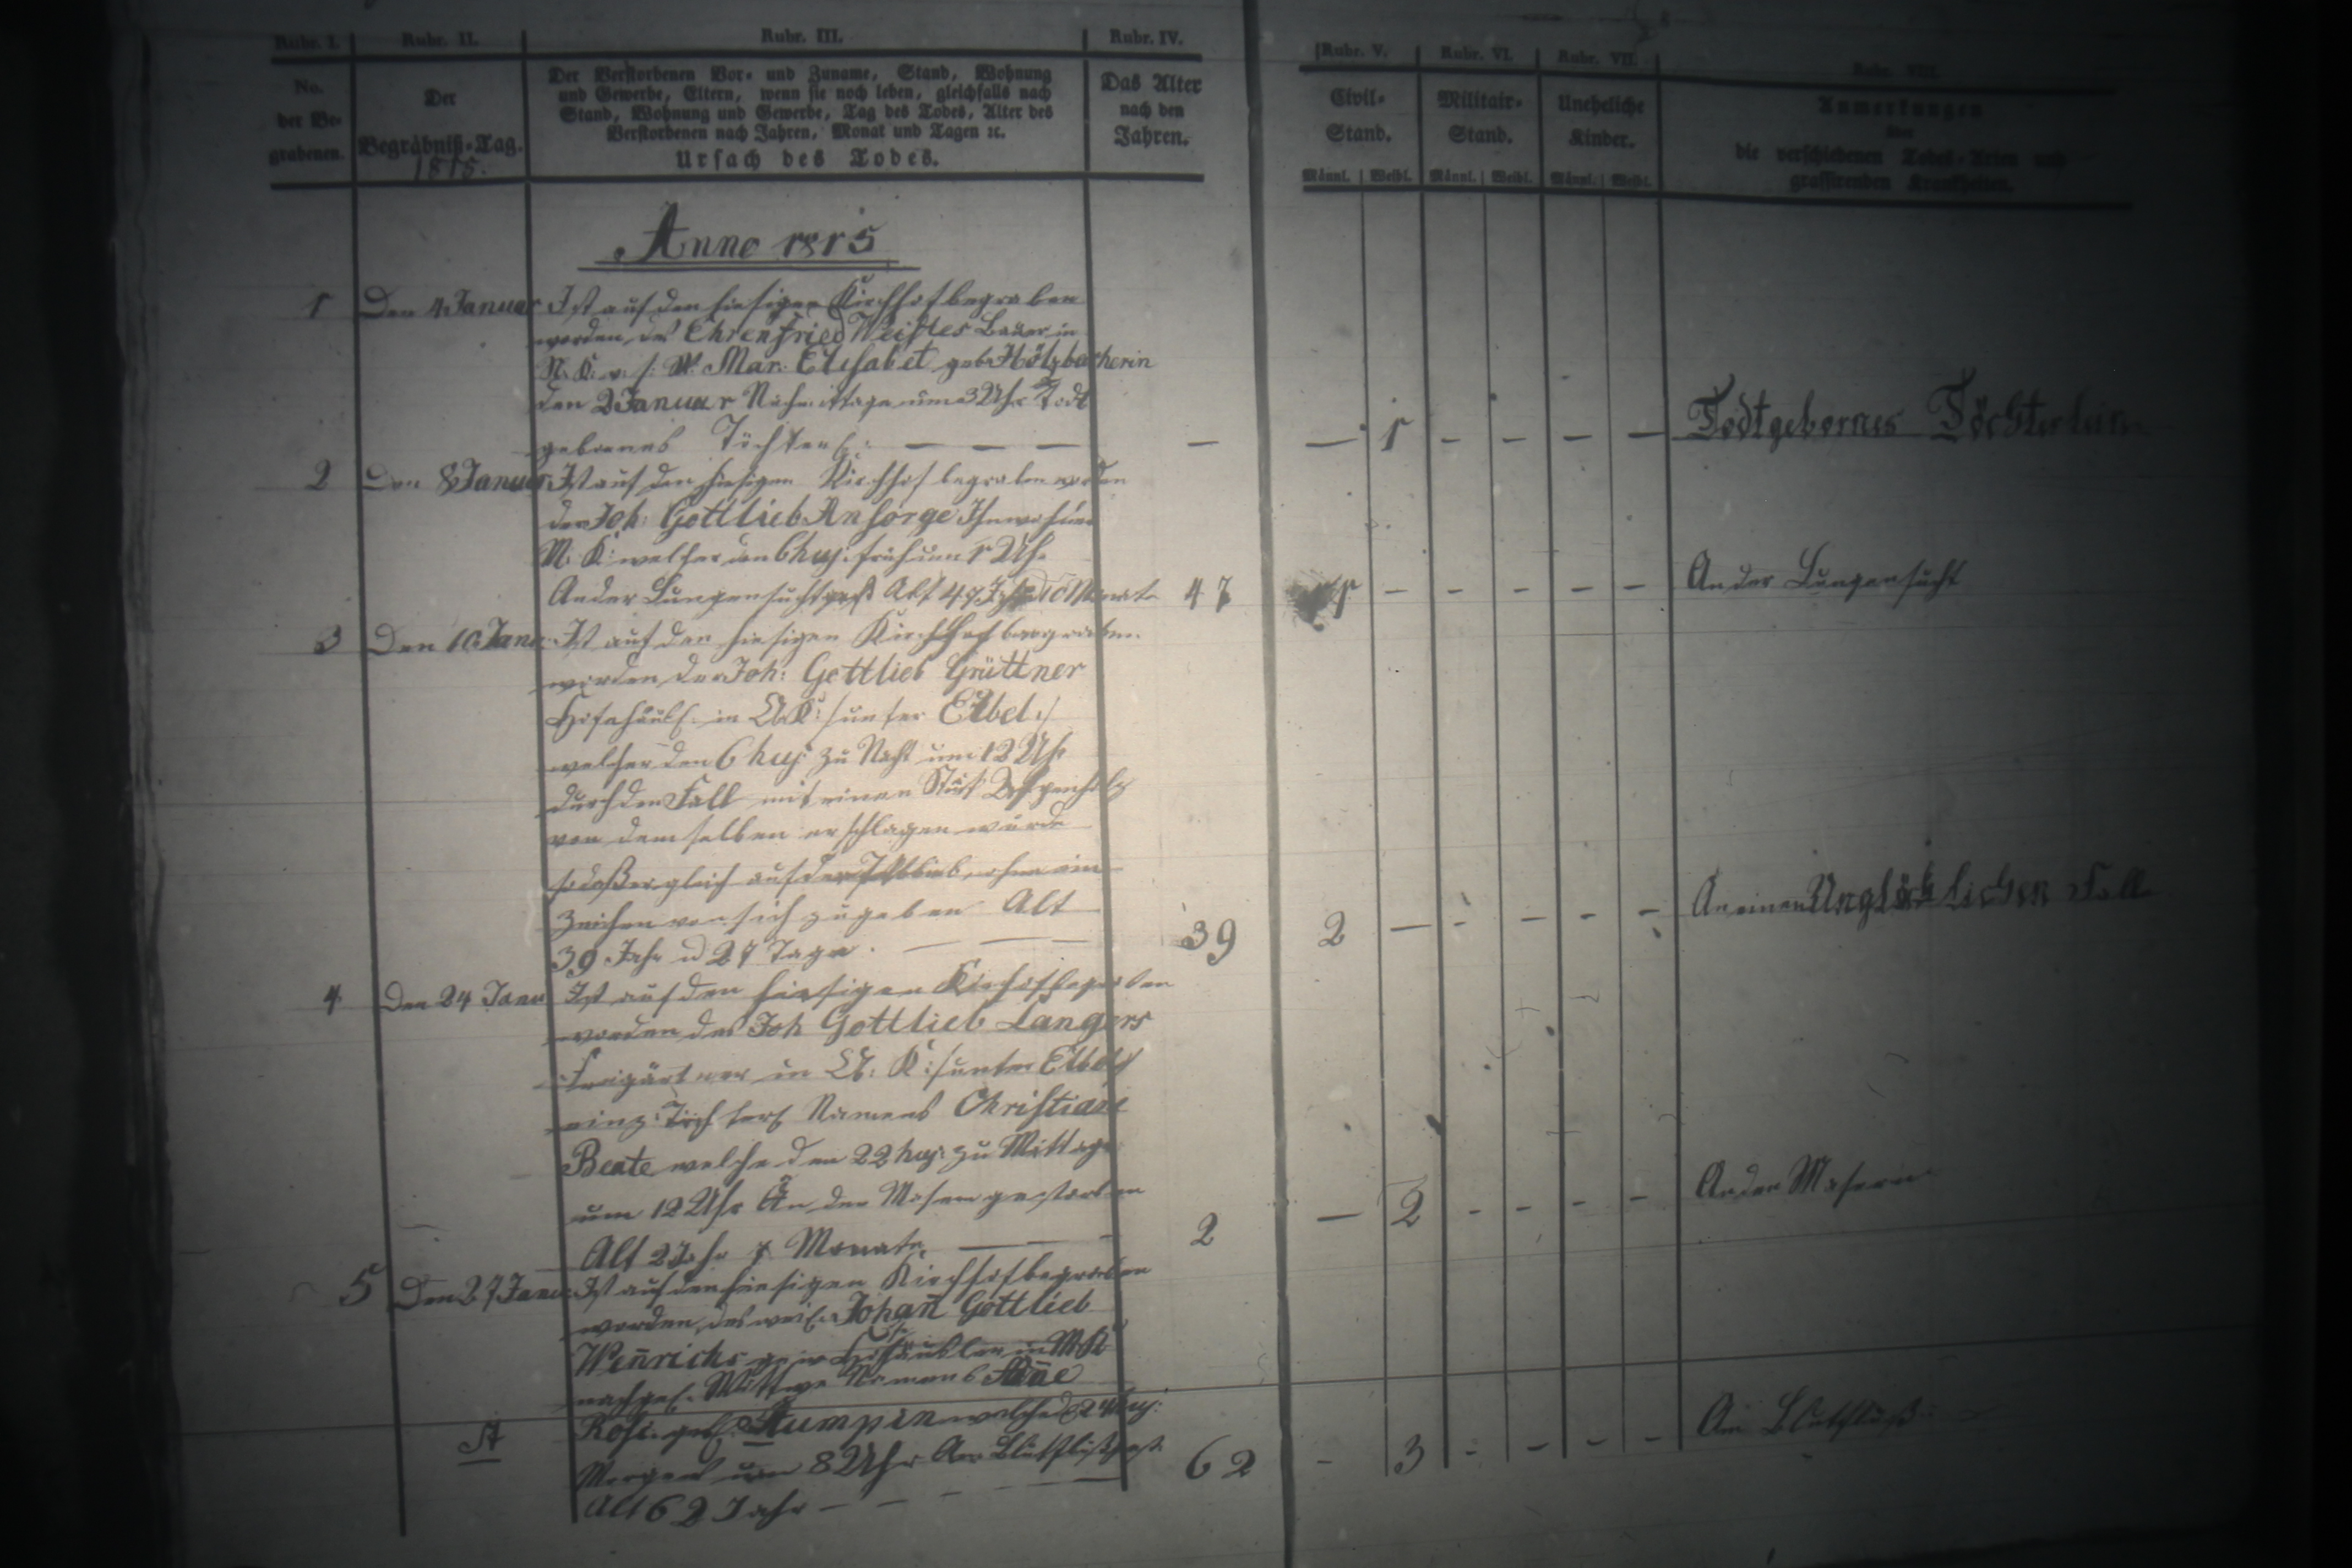 Rubr. I. Rubr. II. Rubr. III. Rubr. IV. Rubr. V. Rubr. VI. Rubr. VII. Rubr. VIII.
No. der Be- grabenen.
Der Begräbniß-Tag. 1815.
Der Verstorbenen Vor- und Zuname, Stand, Wohnung
und Gewerbe, Eltern, wenn sie noch leben, gleichfalls nach
Stand, Wohnung und Gewerbe, Tag des Todes, Alter des
Verstorbenen nach Jahren, Monat und Tagen ꝛc.
Ursach des Todes.
Das Alter
nach den
Jahren.
Civil-
Stand.
Männl. Weibl.
Militair-
Stand.
Männl. Weibl.
Uneheliche
Kinder.
Männl. Weibl.
Anmerkungen
über
die verschiedenen Todes-Arten und
grassirenden Krankheiten.
Anno 1815
1 Den 4 Januar Ist auf den hiesigen Kirchhof begraben
worden des Ehrenfried Bauer in
N. K. Mar: Elisabet geb: Hötzbecherin
den 2 Januar Nachmittage um 3 Uhr Todt
gebornes Töchterl: — — — — — 1 - - - — Todtgebornes Töchterlein
2 Den 8 Januar Ist auf den hiesigen Kirchhof begraben worden
der Joh: Gottlieb Ansorge Inwohner
N. K: welcher den 6 huj: früh um 1 Uhr
An der Lungensucht gest Alt 47 Jahr 10 Monate 47 1 - - - - - An der Lungensucht
3 Den 10 Janu: Ist auf den hiesigen Kirchhof begraben
worden der Joh: Gottlieb Grüttner
Hofehäusl: in K: /unter Eibel:/
welcher den 6 huj: zu Nacht um 12 Uhr
durch den Fall mit einen Stük
von demselben erschlagen wurde
so daß er gleich auf der blieb, ohne ein
Zeichen von sich zu geben Alt
39 Jahr u 27 Tage. — — 39 2 — - - - - An einen Unglücklichen Fall
4 Den 24 Janu Ist auf den hiesigen Kirchhof begraben
worden des Joh Gottlieb Langers
Freigärtner in K: /unter Eibel/
einz: Töchterl Namens Christiane
Beate welche den 22 huj: zu Mittage
um 12 Uhr An den Masern gestorben
Alt 2 Jahr Monate — — 2 — 2 - - - - An den Masern
5 Den 27 Janu: Ist auf den hiesigen Kirchhof begraben
worden, des weil: Johan̄ Gottlieb
Wen̄richs gew Hofhäusler in
nachgel: Wittwe Namens An̄e
Rosi: geb: Rumpin welche d 24 huj:
Morgens um 8 Uhr Am Blutfluß gest
Alt 62 Jahr — — — 62 - 3 - - - - Am Blutfluß
A